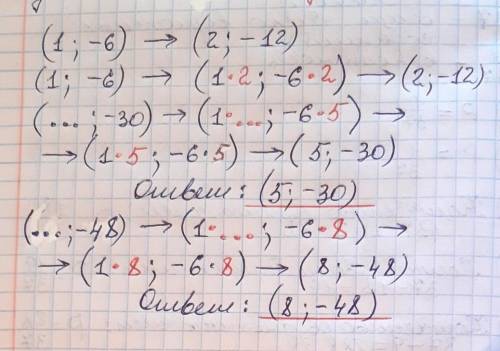 (1 ; -6) → (2 ; -12)
(1 ; -6) → (1·2 ; -6·2) → (2; -12)
(... ; -30) → (1·... ; -6·5) →
→ (1·5 ; -6·5) → (5 ; -30)
Ответ: (5; -30)
(... ; -48) → (1·... ; -6·8) →
→ (1·8 ; -6·8) → (8 ; -48)
Ответ: (8 ; -48)